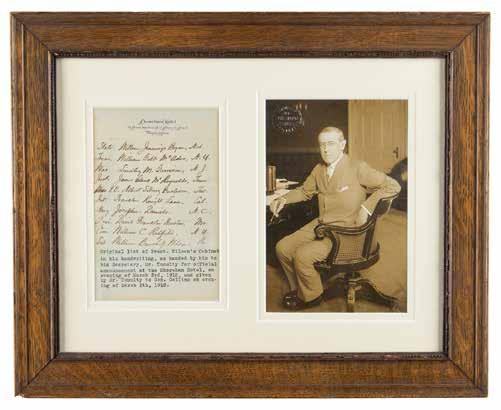 Shoreham Hotel
Washington
State William Jennings Bryan, Neb
Treas William Gibbs McAdoo, N.Y.
War Lindley M. Garrison, N.J.
Just. James Clark McReynolds, Ten
P.O. Albert Sidney Burleson, Tex
Int Franklin Knight Lane, Cal
Navy Josephus Daniels, N.C.
David Franklin Houston, Mo
Com William C. Redfield, N.Y.
Lab William Wilson, Pa
Original list of Prest. Wilson's Cabinet
in his handwriting, as handed by him to
his Secretary, Mr. Tumulty for official
announcement at the Shoreham Hotel, on
evening of March 3rd, 1913, and given
by Mr. Tumulty to Geo. on
evening of March 1913.